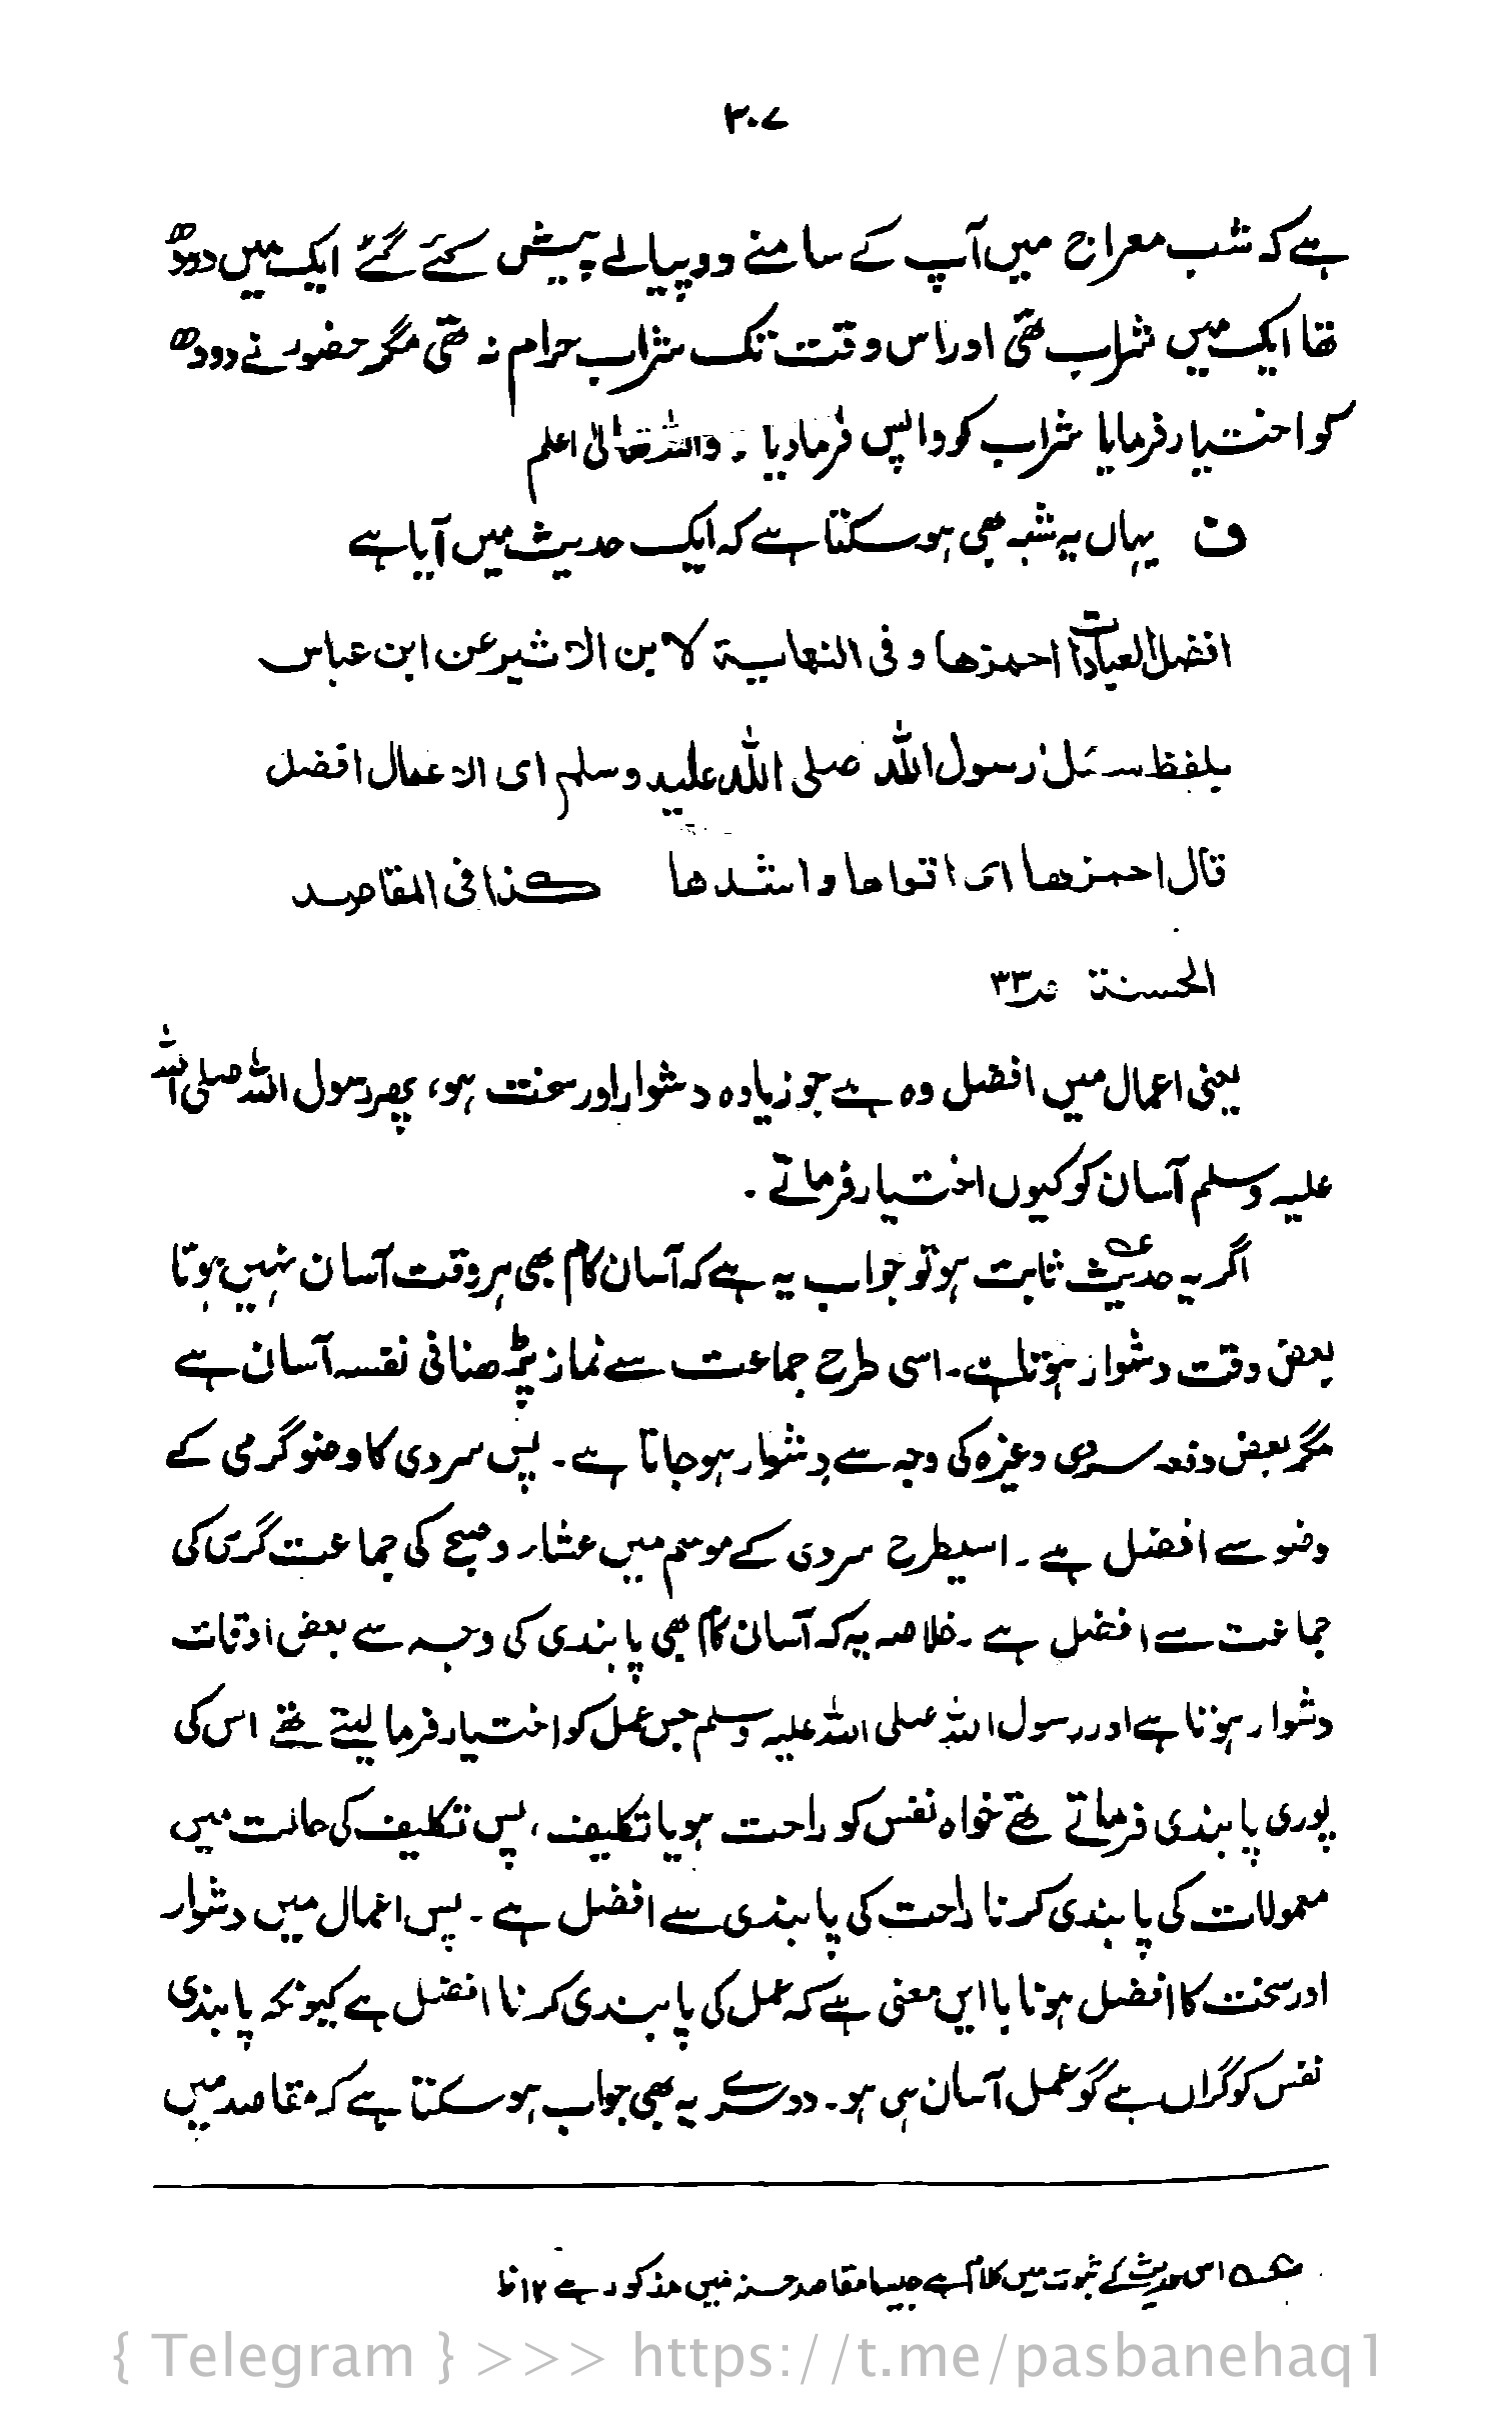 ۳۰۷
ہے کہ شب معراج میں آپ کے سامنے دو پیالے پیش کئے گئے ایک میں دودھ
تھا ایک میں شراب تھی اور اس وقت تک شراب حرام نہ تھی مگر حضور نے دودھ
کو اختیار فرمایا شراب کو واپس فرما دیا ۔ واللہ تعالیٰ اعلم
ف یہاں یہ شبہ بھی ہو سکتا ہے کہ ایک حدیث میں آیا ہے
افضل العبادات احمزھا و فی النھایۃ لابن الاثیر عن ابن عباس
بلفظ سئل رسول اللہ صلی اللہ علیہ وسلم ای الاعمال افضل
قال احمزھا ای اقواھا واشدھا کذا فی المقاصد
الحسنۃ ص۳۳
یعنی اعمال میں افضل وہ ہے جو زیادہ دشوار اور سخت ہو، پھر رسول اللہ صلی اللہ
علیہ وسلم آسان کو کیوں اختیار فرماتے ۔
اگر یہ حدیث عہ ثابت ہو تو جواب یہ ہے کہ آسان کام بھی ہر وقت آسان نہیں ہوتا
بعض وقت دشوار ہوتا ہے۔ اسی طرح جماعت سے نماز پڑھنا فی نفسہ آسان ہے
مگر بعض دفعہ سردی وغیرہ کی وجہ سے دشوار ہو جاتا ہے ۔ پس سردی کا وضو گرمی کے
وضو سے افضل ہے ۔ اسیطرح سردی کے موسم میں عشاء و صبح کی جماعت گرمی کی
جماعت سے افضل ہے ۔ خلاصہ یہ کہ آسان کام بھی پابندی کی وجہ سے بعض اوقات
دشوار ہوتا ہے اور رسول اللہ صلی اللہ علیہ وسلم جس عمل کو اختیار فرما لیتے تھے اس کی
پوری پابندی فرماتے تھے خواہ نفس کو راحت ہو یا تکلیف ، پس تکلیف کی حالت میں
معمولات کی پابندی کرنا راحت کی پابندی سے افضل ہے ۔ پس اعمال میں دشوار
اور سخت کا افضل ہونا بایں معنی ہے کہ عمل کی پابندی کرنا افضل ہے کیونکہ پابندی
نفس کو گراں ہے گو عمل آسان ہی ہو ۔ دوسرے یہ بھی جواب ہو سکتا ہے کہ مقاصد میں
عہ اس حدیث کے ثبوت میں کلام ہے جیسا مقاصد حسنہ میں مذکور ہے ۱۲ ظ
{ Telegram } >>> https://t.me/pasbanehaq1